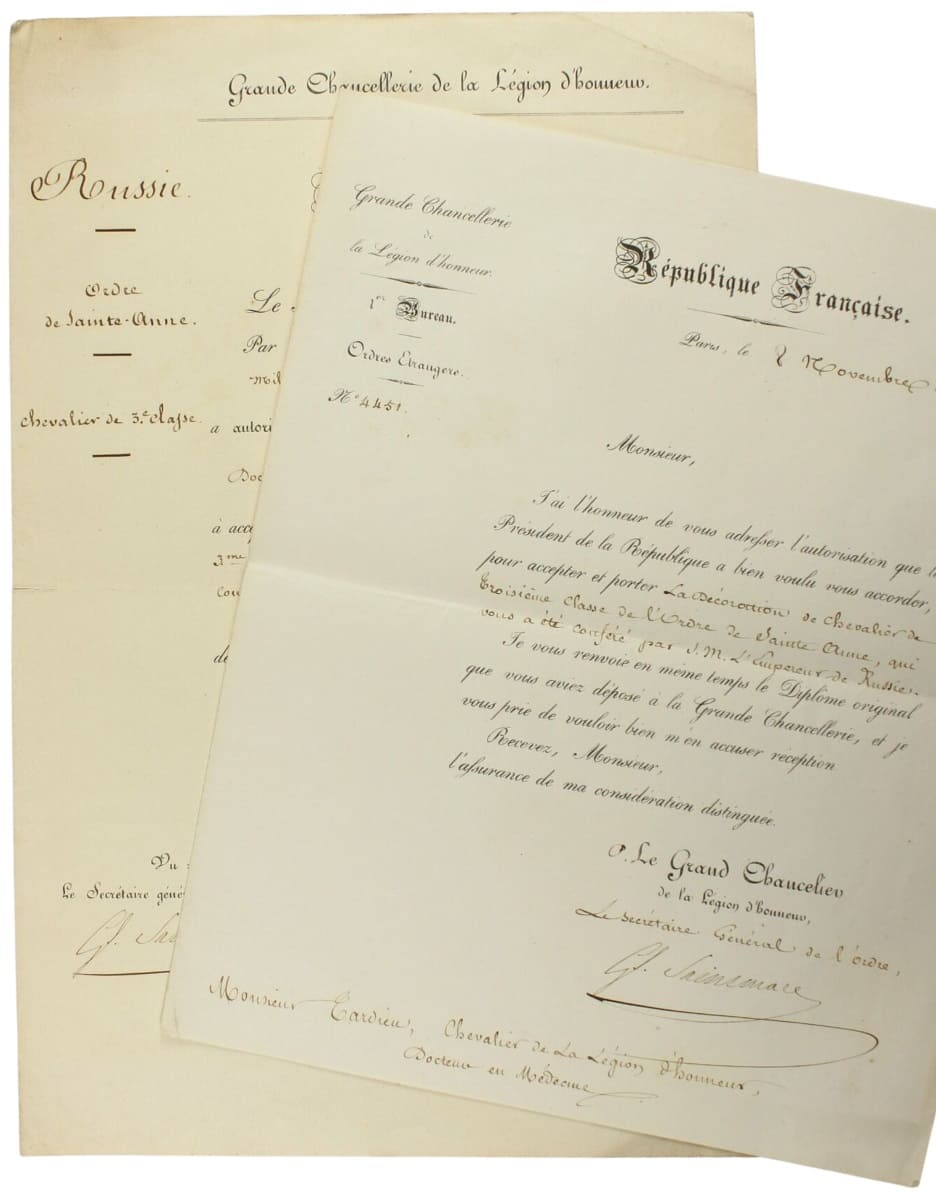 Grande Chancellerie de la Légion d'honneur.
Russie.
Ordre
de Sainte-Anne.
Chevalier de 3.e classe.
Le
Par
Mil
a autori
Doc
à acc
3me
Cou
de
Vu :
Le Secrétaire géné
Grande Chancellerie
de
la Légion d'honneur.
1er Bureau.
Ordres Etrangers.
No 4451.
République Française.
Paris, le 8 Novembre
Monsieur,
J'ai l'honneur de vous adresser l'autorisation que l
Président de la République a bien voulu vous accorder,
pour accepter et porter La Décoration de Chevalier de
Troisième classe de l'Ordre de Sainte Anne, qui
vous a été conféré par S. M. L'Empereur de Russie.
Je vous renvoie en même temps le Diplôme original
que vous aviez déposé à la Grande Chancellerie, et je
vous prie de vouloir bien m'en accuser réception
Recevez, Monsieur,
l'assurance de ma considération distinguée.
P. Le Grand Chancelier
de la Légion d'honneur,
Le Secrétaire Général de l'Ordre,
Monsieur Tardieu, Chevalier de La Légion d'honneur,
Docteur en Médecine